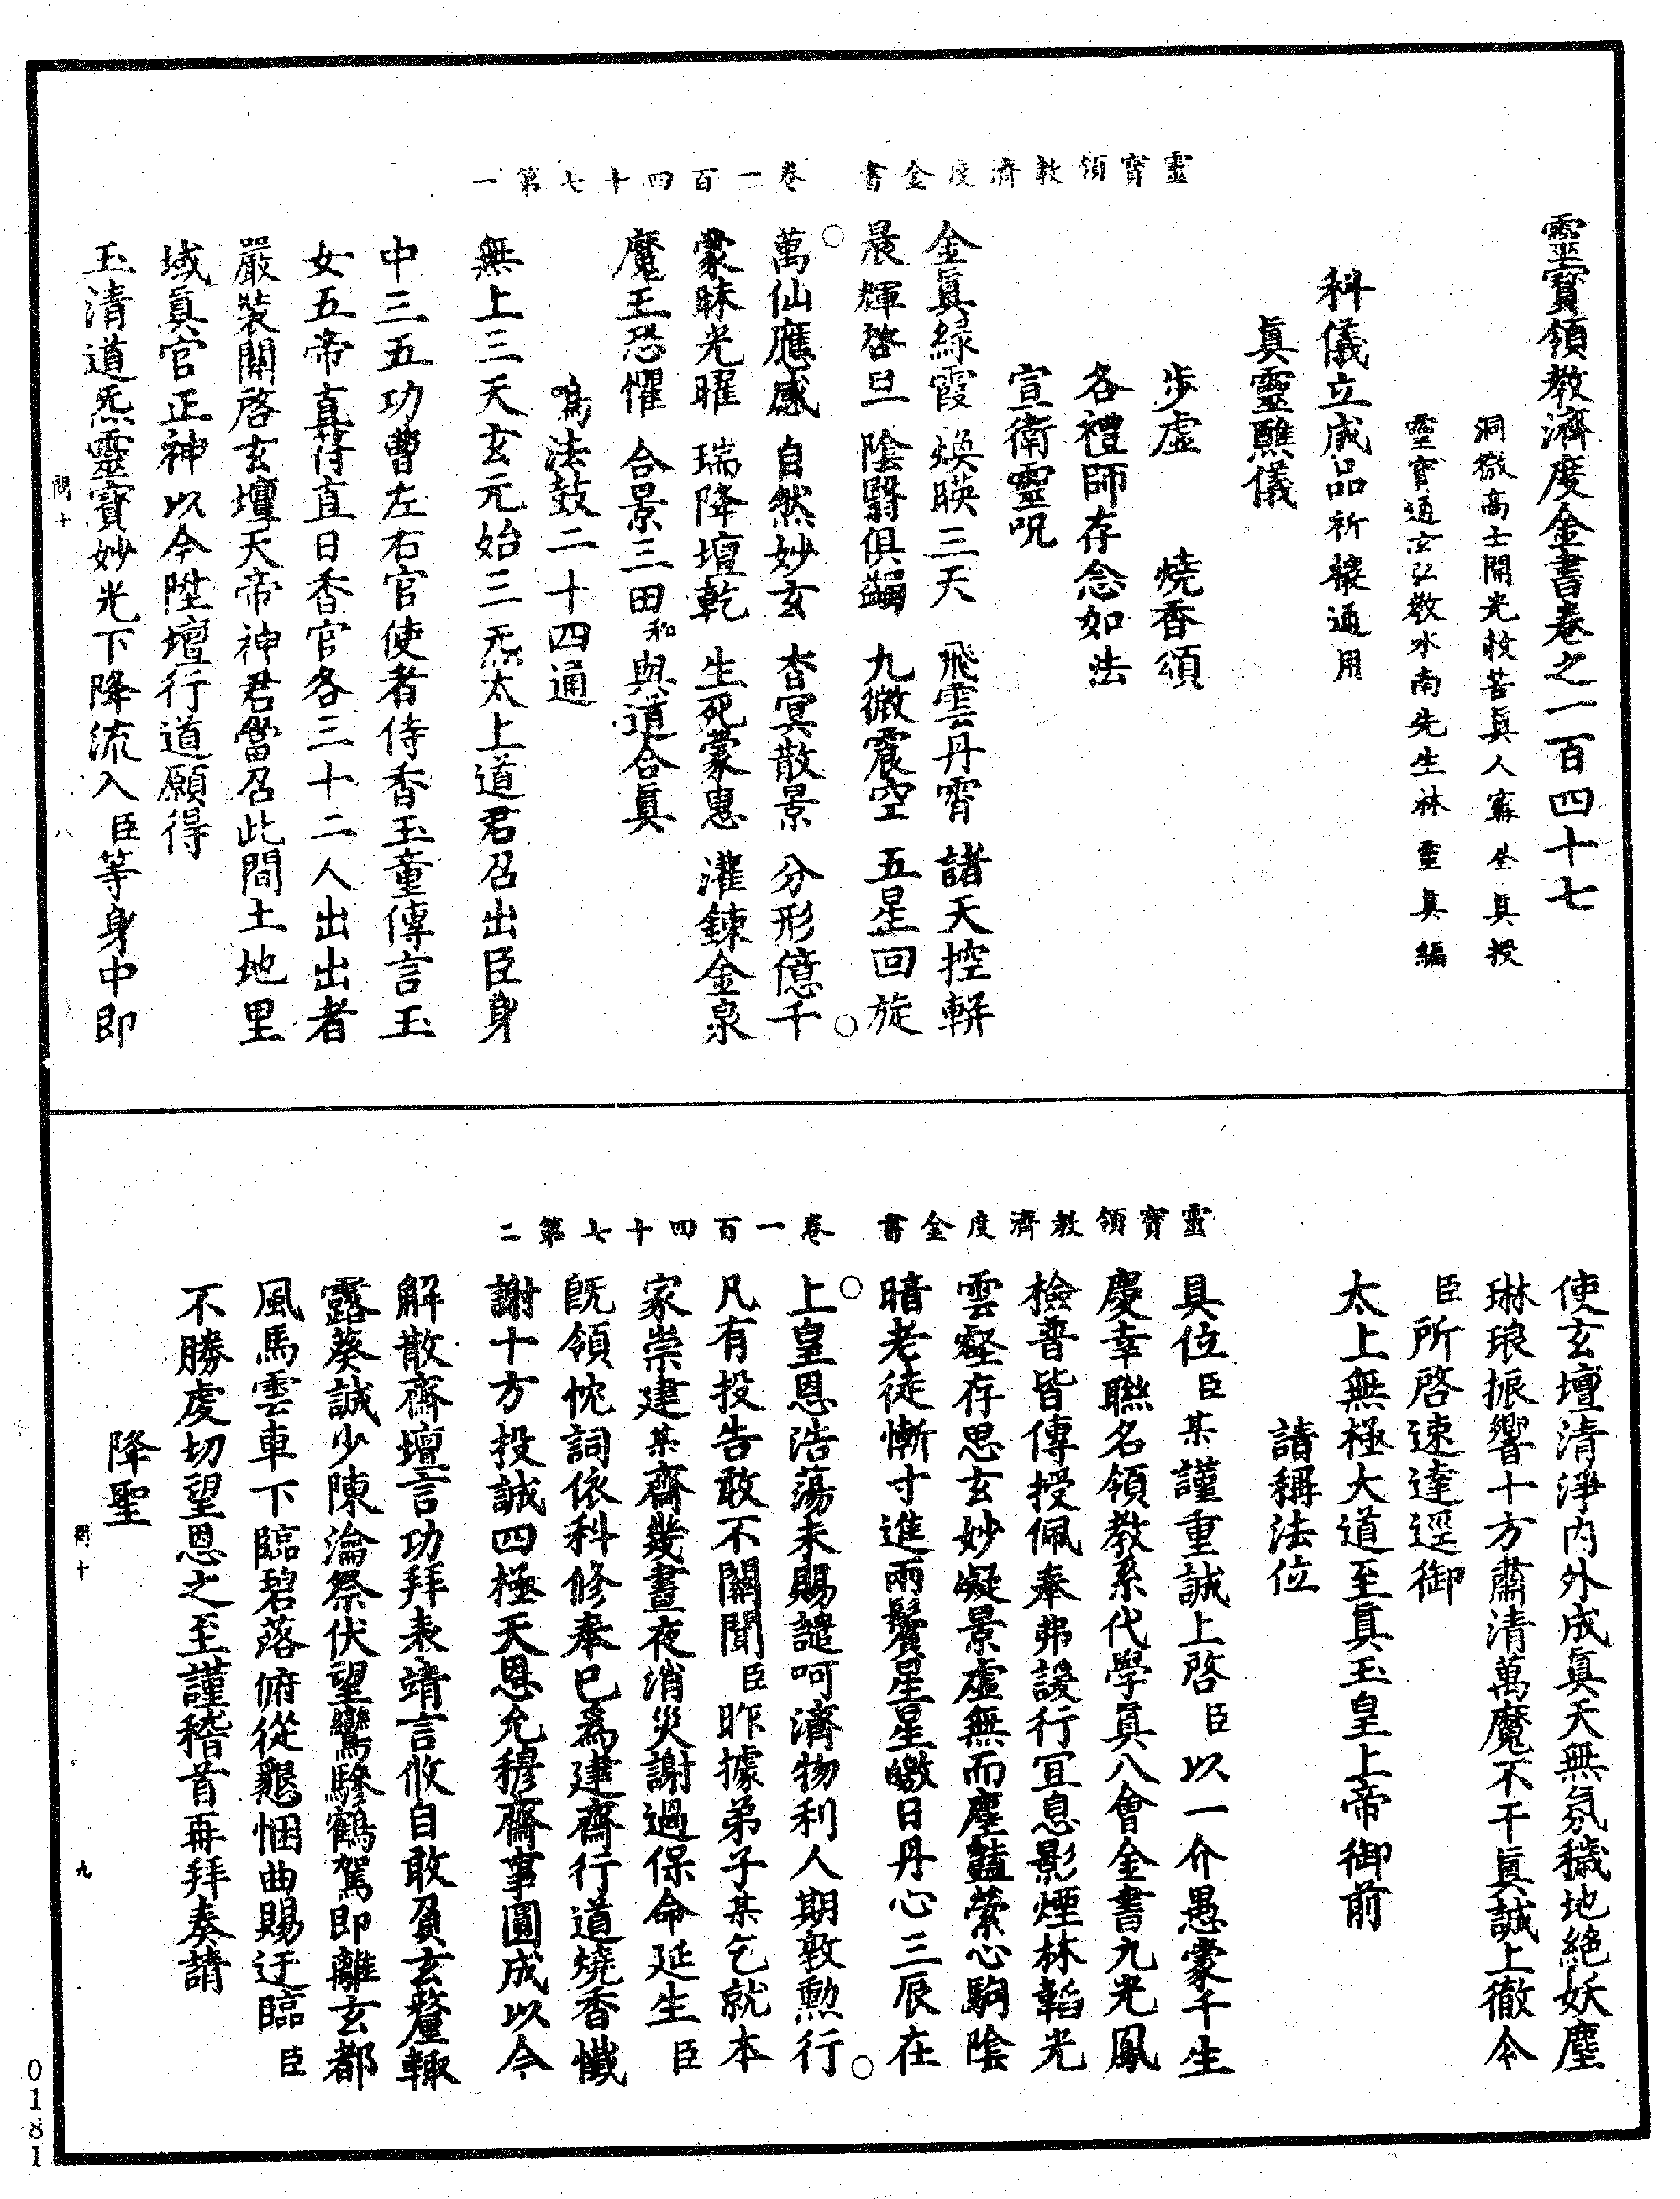 靈寶領教濟度金書卷之一百四十七
洞微高士開光救苦眞人甯全眞授
靈寶通玄弘教水南先生林靈眞編
科儀立成品祈禳通用
眞靈醮儀
步虛　燒香頌
各禮師存念如法
宣衛靈呪
金眞綠霞　煥暎三天　飛雲丹霄　諸天控軿
晨輝啓旦　陰翳俱蠲　九微震空　五星回旋
萬仙應感　自然妙玄　杳冥散景　分形億千
蒙昧光曜　瑞降壇乾　生死蒙惠　灌鍊金泉
魔王恐懼　合景三田和與道合眞
鳴法鼓二十四通
無上三天玄元始三炁太上道君召出臣身
中三五功曹左右官使者侍香玉童傳言玉
女五帝直符直日香官各三十二人出出者
嚴裝關啓玄壇天帝神君當召此間土地里
域眞官正神以今陞壇行道願得
玉清道炁靈寶妙光下降流入臣等身中即
靈寶領教濟度金書　卷一百四十七第一
問十　八
使玄壇清淨內外成眞天無氛穢地絕妖塵
琳琅振響十方肅清萬魔不干眞誠上徹令
臣所啓速達逕御
太上無極大道至眞玉皇上帝御前
請稱法位
具位臣某謹重誠上啓臣以一介愚蒙千生
慶幸聯名領教系代學眞八會金書九光鳳
檢普皆傳授佩奉弗諼行宜息影煙林韜光
雲壑存思玄妙凝景虛無而塵豔縈心駒陰
暗老徒慚寸進兩鬢星星皦日丹心三辰在
上皇恩浩蕩未賜譴呵濟物利人期敦勲行
凡有投告敢不關聞臣昨據弟子某乞就本
家崇建某齋幾晝夜消災謝過保命延生臣
旣領忱詞依科修奉已爲建齋行道燒香懺
謝十方投誠四極天恩允穆齋事圓成以今
解散齋壇言功拜表靖言攸自敢負玄釐輙
露葵誠少陳淪祭伏望鸞驂鶴駕即離玄都
風馬雲車下臨碧落俯從懇悃曲賜迂臨臣
不勝虔切望恩之至謹稽首再拜奏請
降聖
靈寶領教濟度金書　卷一百四十七第二
問十　九
0181